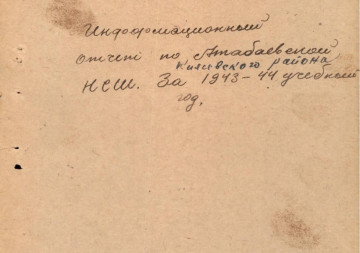 Информационный
отчет по Атабаевской
Кизнерского района
НСШ. За 1943-44 учебный
год.